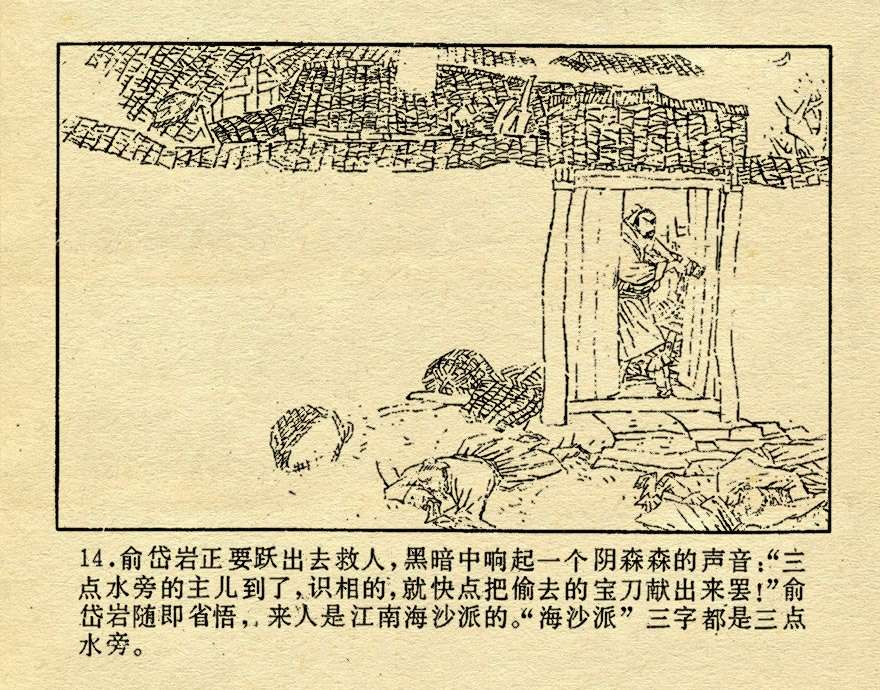 14.俞岱岩正要跃出去救人，黑暗中响起一个阴森森的声音：“三
点水旁的主儿到了，识相的，就快点把偷去的宝刀献出来罢！”俞
岱岩随即省悟，来人是江南海沙派的。“海沙派”三字都是三点
水旁。